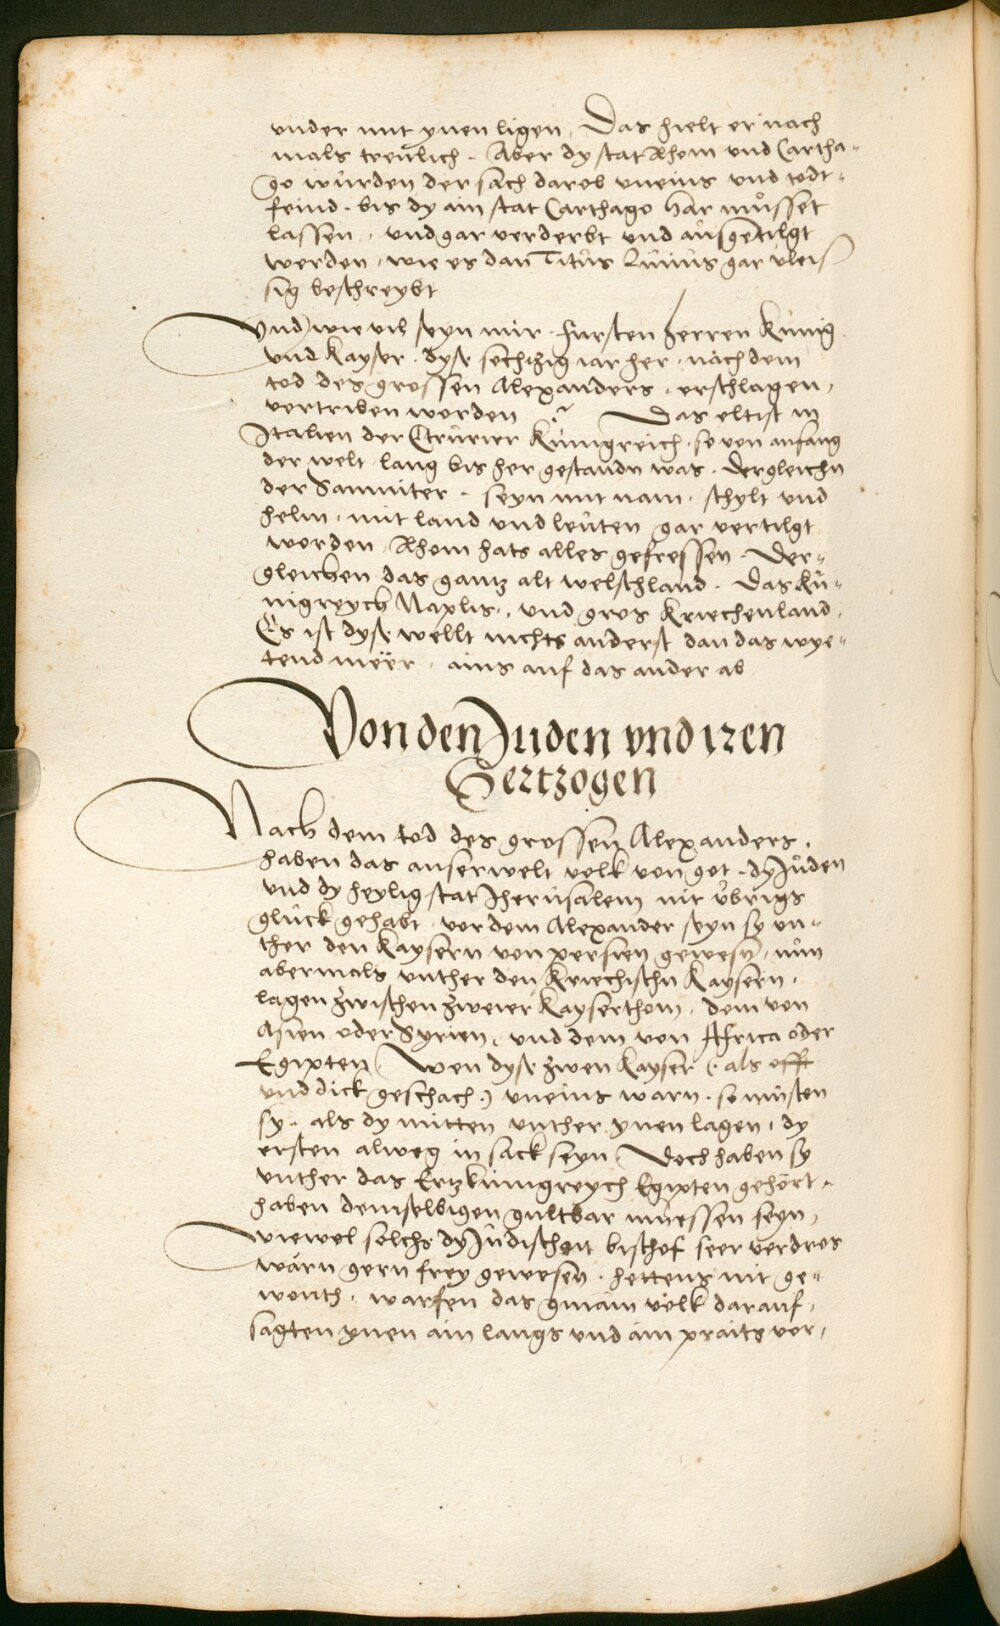 vnder mit ynen ligen, Das hielt er nach
mals treulich. Aber dy stat Rhom vnd Cartha-
go wurden der sach darob vneins vnd todt-
feind. bis dy ain stat Carthago har můsset
lassen, vnd gar verderbt vnd ausgetilgt
werden, wie es dan Titus Liuius gar vleis
sig beschreybt
Vnd wie vil seyn mir. fursten herren Künig
vnd Kayser. dyse sechtzig iar her, nach dem
tod des grossen Alexanders, erschlagen,
vertriben worden? Das eltist in
Italien der Etrurier Künigreich, so von anfang
der welt lang bis her gestandn was. dergleichn
der Samniter. seyn mit nam, schylt vnd
helm, mit land vnd leuten gar vertilgt
worden, Rhom hats alles gefressen. Der-
gleichen das gantz alt welschland. Das Kü-
nigreych Naplis, vnd gros Kriechenland.
Es ist dyse wellt nichts anderst dan das wye-
tend meer, ains auf das ander ab
Von den Juden vnd iren
Hertzogen
Nach dem tod des grossen Alexanders,
haben das auserwelt volk von got, dy Juden
vnd dy heylig stat Jherusalem nit übrigs
glück gehabt, vor dem Alexander seyn sy vn-
ther den Kaysern von persien gewesn, nun
abermals vnther den Kriechischn Kaysern,
lagen zwischen zweier Kayserthom, dem von
Asien oder Syrien, vnd dem von Africa oder
Egipten. Wen dyse zwen Kayser (als offt
vnd dick geschach) vneins warn. so müsten
sy, als dy mitten vnther ynen lagen, dy
ersten alweg in sack seyn. Doch haben sy
vnther das Ertzkünigreych Egipten gehört,
haben demselbigen gultbar müessen seyn,
Wiewol solchs dy Judischen bischof seer verdros
wärn gern frey gewesen, hettens nit ge-
wonth, warfen das gmain volk darauf,
sagten ynen ain langs vnd ain praits vor,